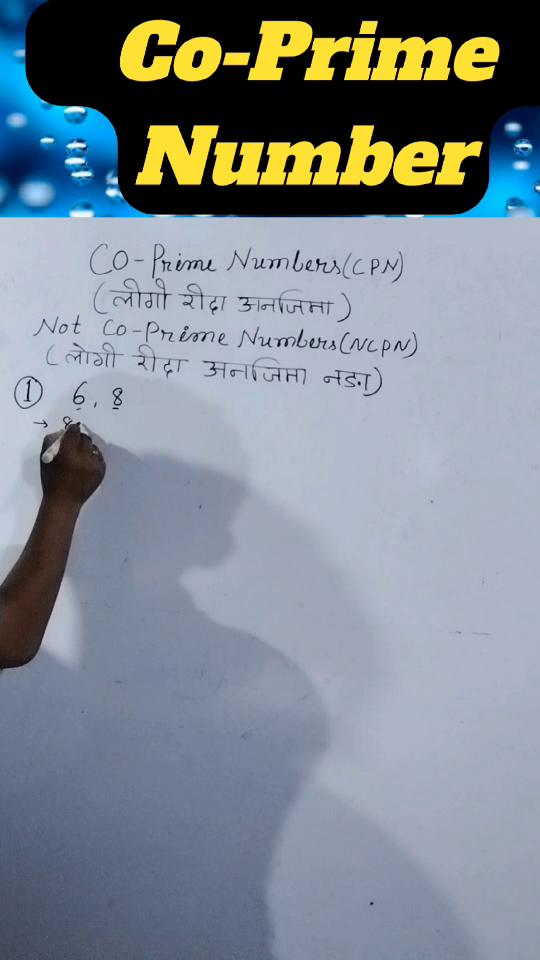 Co-Prime
Number
CO-Prime Numbers(CPN)
(लोगो रीदा अनजिमा)
Not Co-Prime Numbers(NCPN)
(लोगो रीदा अनजिमा नङा)
① 6, 8
→ 8